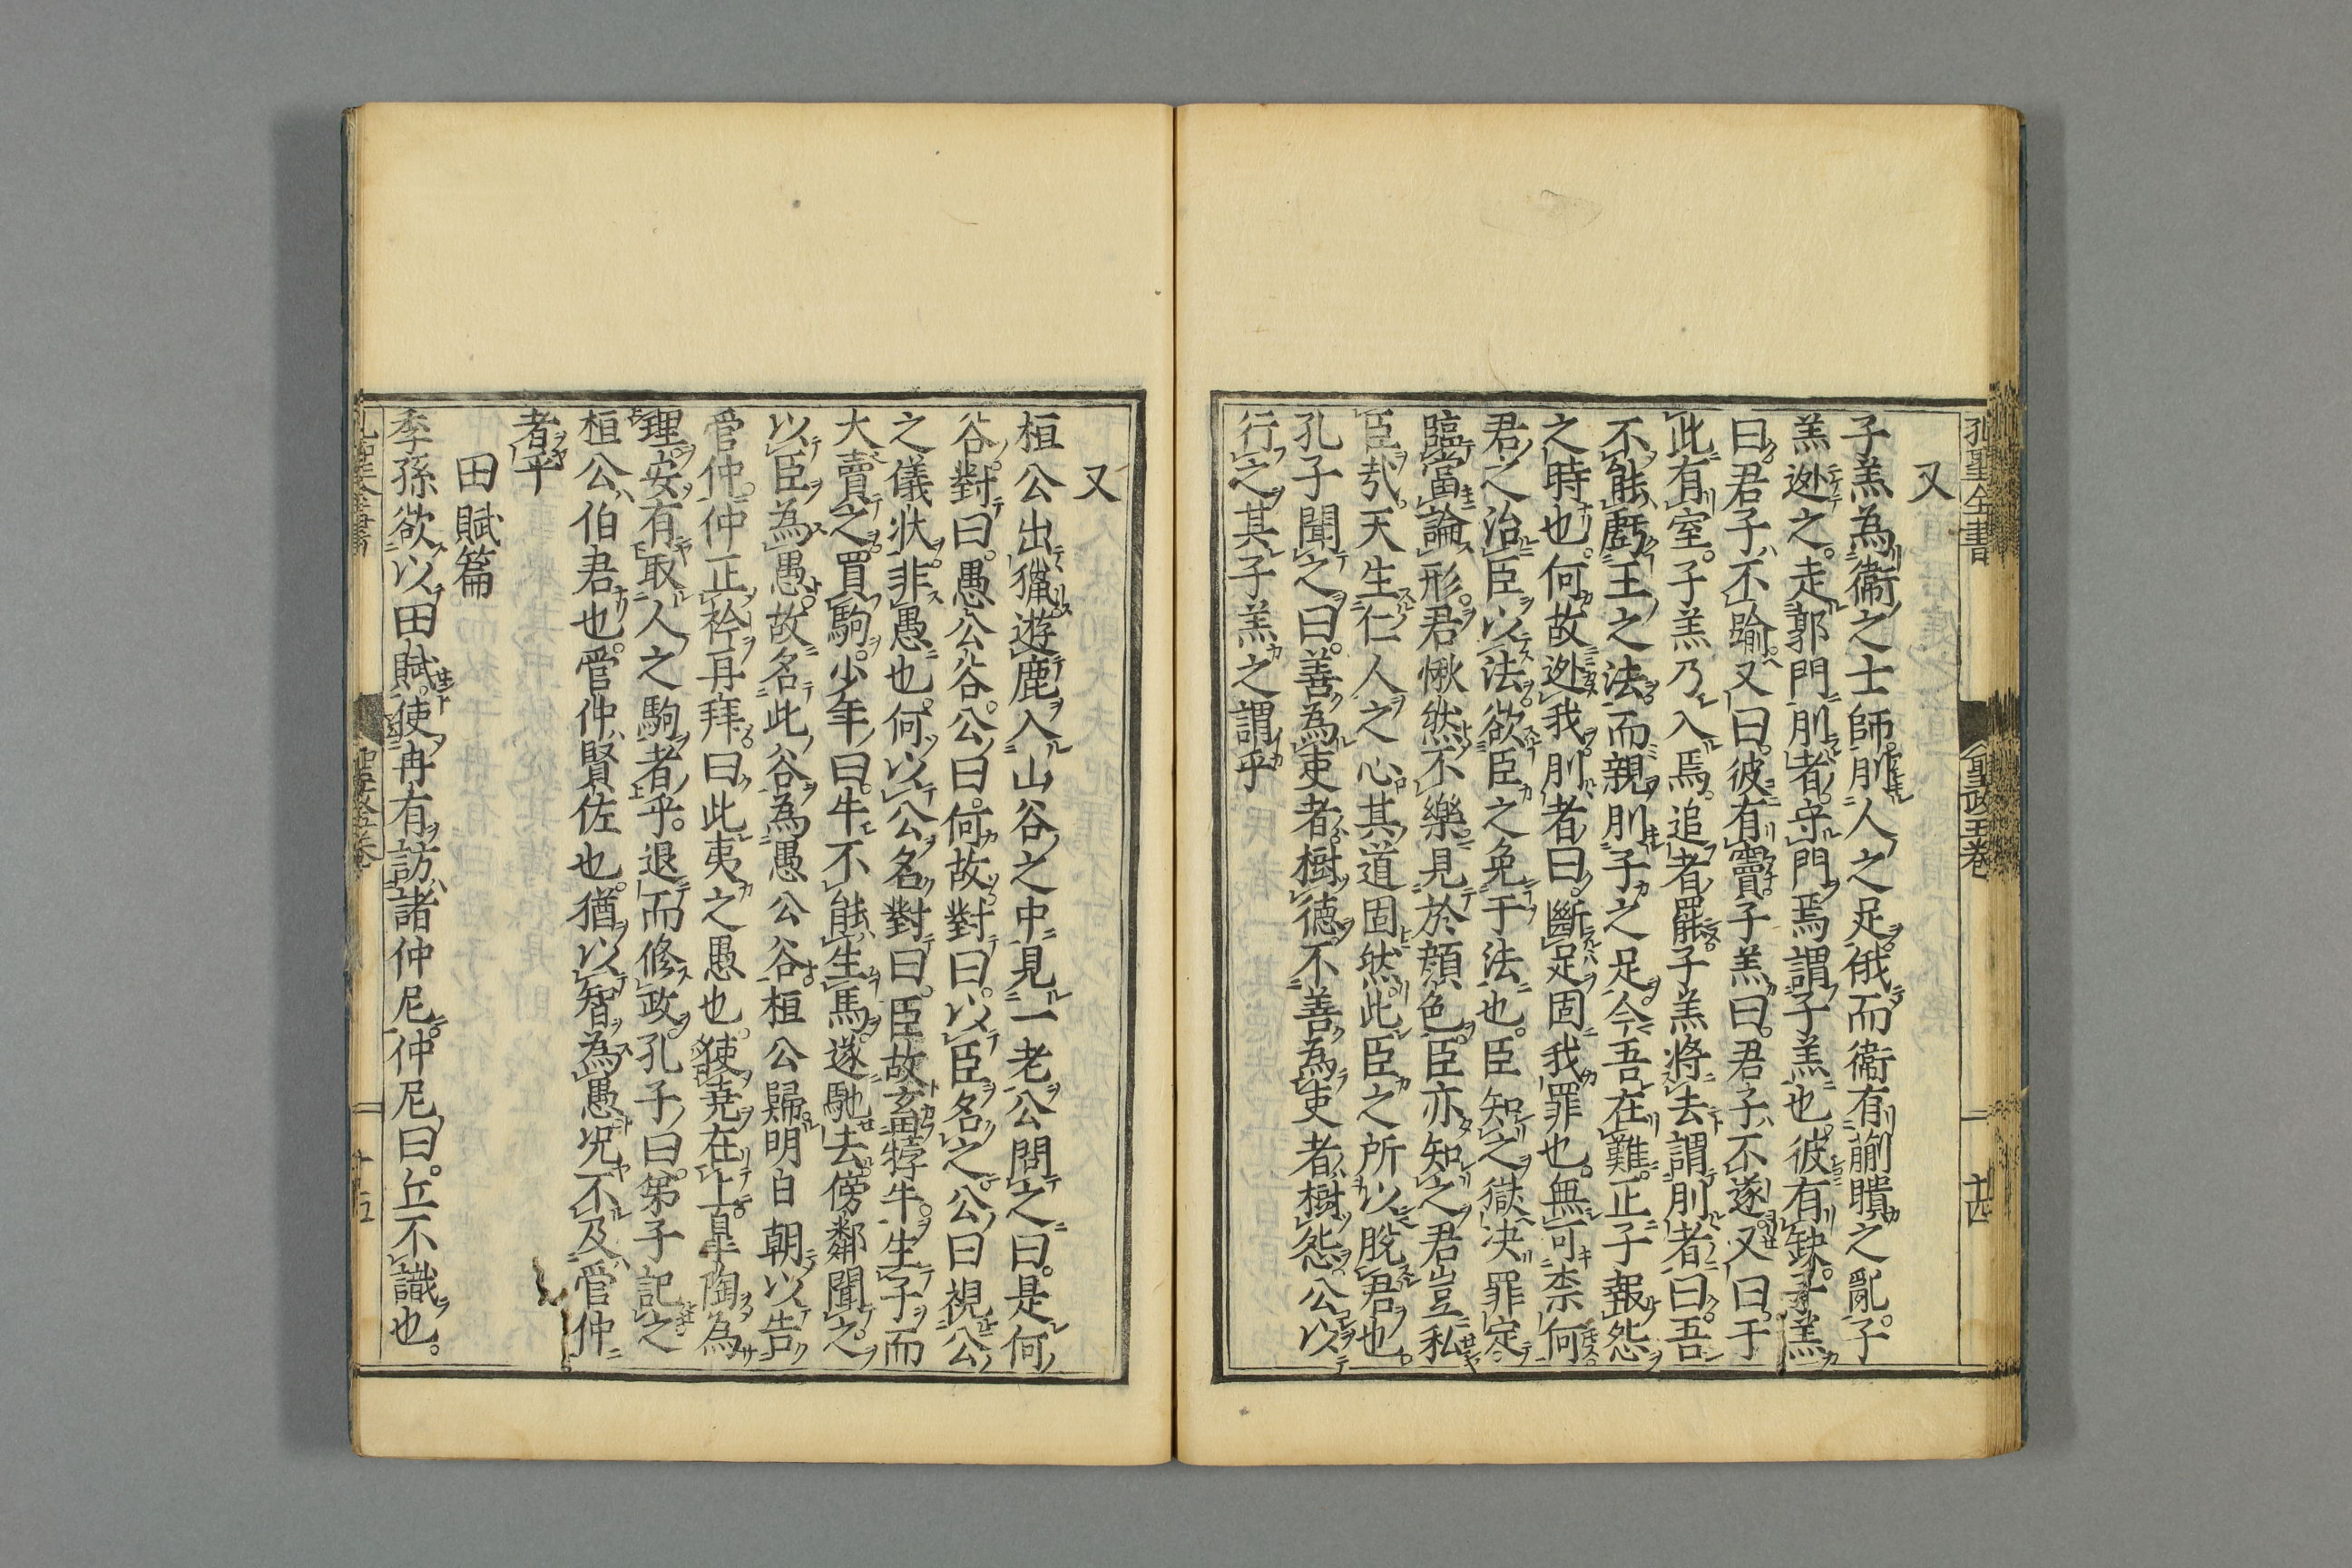 孔聖全書
聖政五卷
十四
又
子羔為衞之士師刖人之足俄而衞有蒯聵之亂子
羔逊之走郭門刖者守門焉謂子羔也彼有缺子羔
曰君子不踰又曰彼有竇子羔曰君子不遂又曰于
此有室子羔乃入焉追者罷子羔將去謂刖者曰吾
不能虧王之法而親刖子之足今吾在難正子報怨
之時也何故逊我刖者曰斷足固我罪也無可柰何
君之治臣以法欲臣之免于法也臣知之獄决罪定
臨當論形君愀然不樂見於顔色臣亦知之君豈私
臣㢤天生仁人之心其道固然此臣之所以脫君也
孔子聞之曰善為吏者樹德不善為吏者樹怨公以
行之其子羔之謂乎
又
桓公出獵遊鹿入山谷之中見一老公問之曰是何
谷對曰愚公谷公曰何故對曰以臣名之公曰視公
之儀狀非愚也何以公名對曰臣故畜牸牛生子而
大賣之買駒少年曰牛不能生馬遂馳去傍鄰聞之
以臣為愚故名此谷為愚公谷桓公歸明白朝以告
管仲仲正衿再拜曰此夷之愚也使堯在上臯陶為
理安有取人之駒者乎退而修政孔子曰第子記之
桓公伯君也管仲賢佐也猶以智為愚况不及管仲
者乎
田賦篇
季孫欲以田賦使冉有訪諸仲尼仲尼曰丘不識也